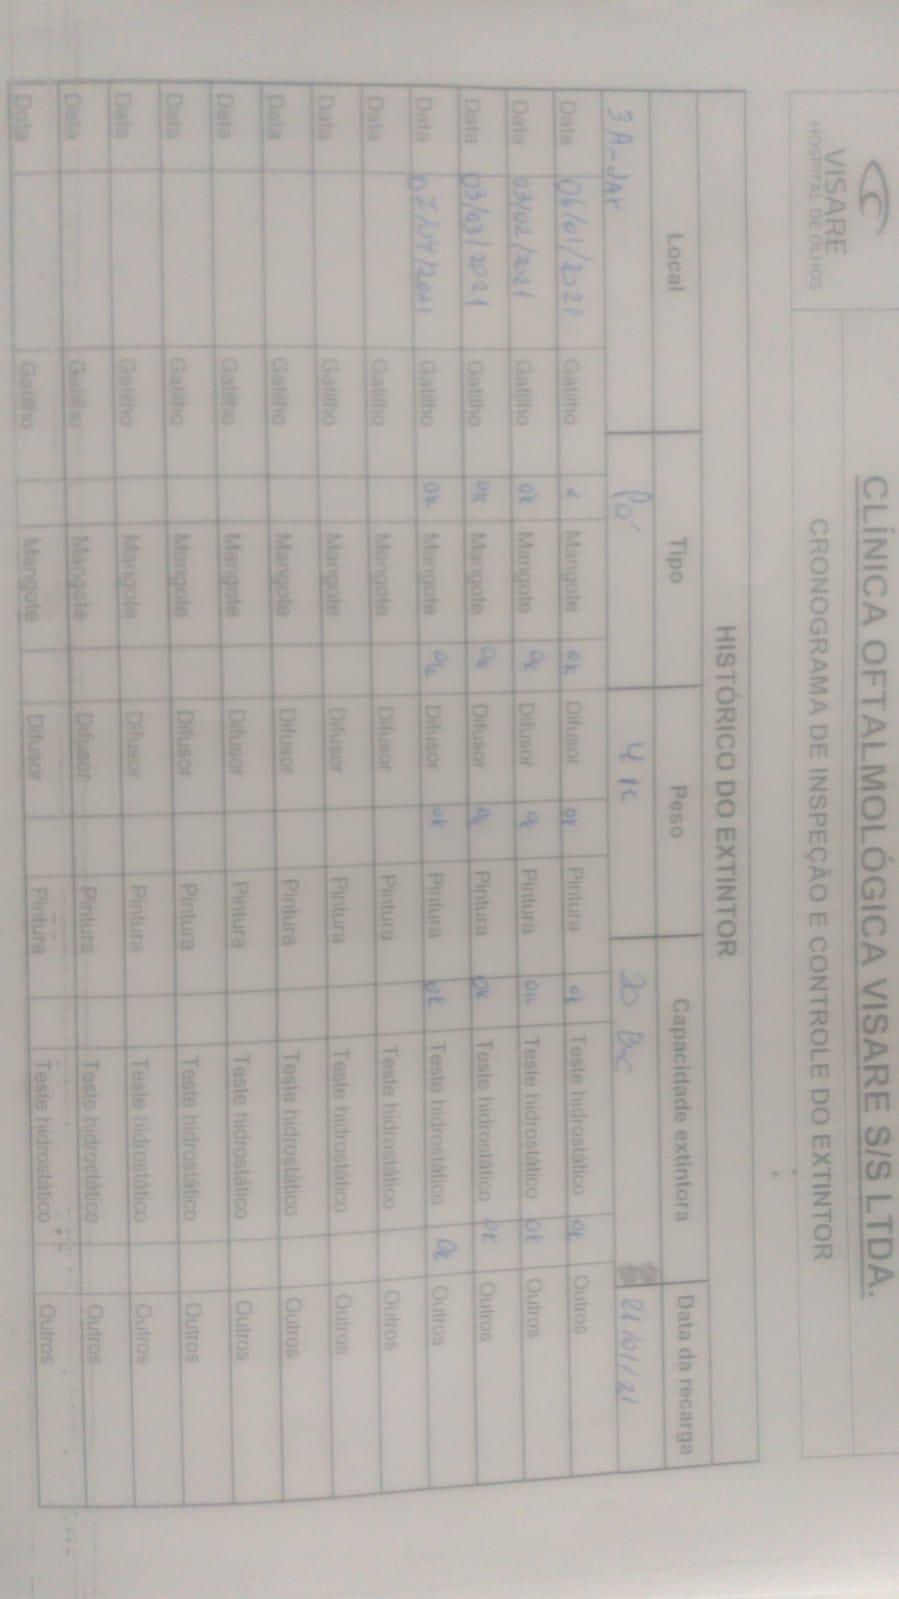 VISARE
HOSPITAL DE OLHOS
CLÍNICA OFTALMOLÓGICA VISARE S/S LTDA.
CRONOGRAMA DE INSPEÇÃO E CONTROLE DO EXTINTOR
HISTÓRICO DO EXTINTOR
Local Tipo Peso Capacidade extintora Data da recarga
3 Andar Pó 4 K 20 B-C 21/01/21
Data 06/01/2021 Gatilho Mangote ok Difusor ok Pintura ok Teste hidrostático ok Outros
Data 03/02/2021 Gatilho ok Mangote ok Difusor ok Pintura ok Teste hidrostático ok Outros
Data 03/03/2021 Gatilho ok Mangote ok Difusor ok Pintura ok Teste hidrostático ok Outros
Data 07/04/2021 Gatilho ok Mangote ok Difusor ok Pintura ok Teste hidrostático ok Outros
Data Gatilho Mangote Difusor Pintura Teste hidrostático Outros
Data Gatilho Mangote Difusor Pintura Teste hidrostático Outros
Data Gatilho Mangote Difusor Pintura Teste hidrostático Outros
Data Gatilho Mangote Difusor Pintura Teste hidrostático Outros
Data Gatilho Mangote Difusor Pintura Teste hidrostático Outros
Data Gatilho Mangote Difusor Pintura Teste hidrostático Outros
Data Gatilho Mangote Difusor Pintura Teste hidrostático Outros
Data Gatilho Mangote Difusor Pintura Teste hidrostático Outros